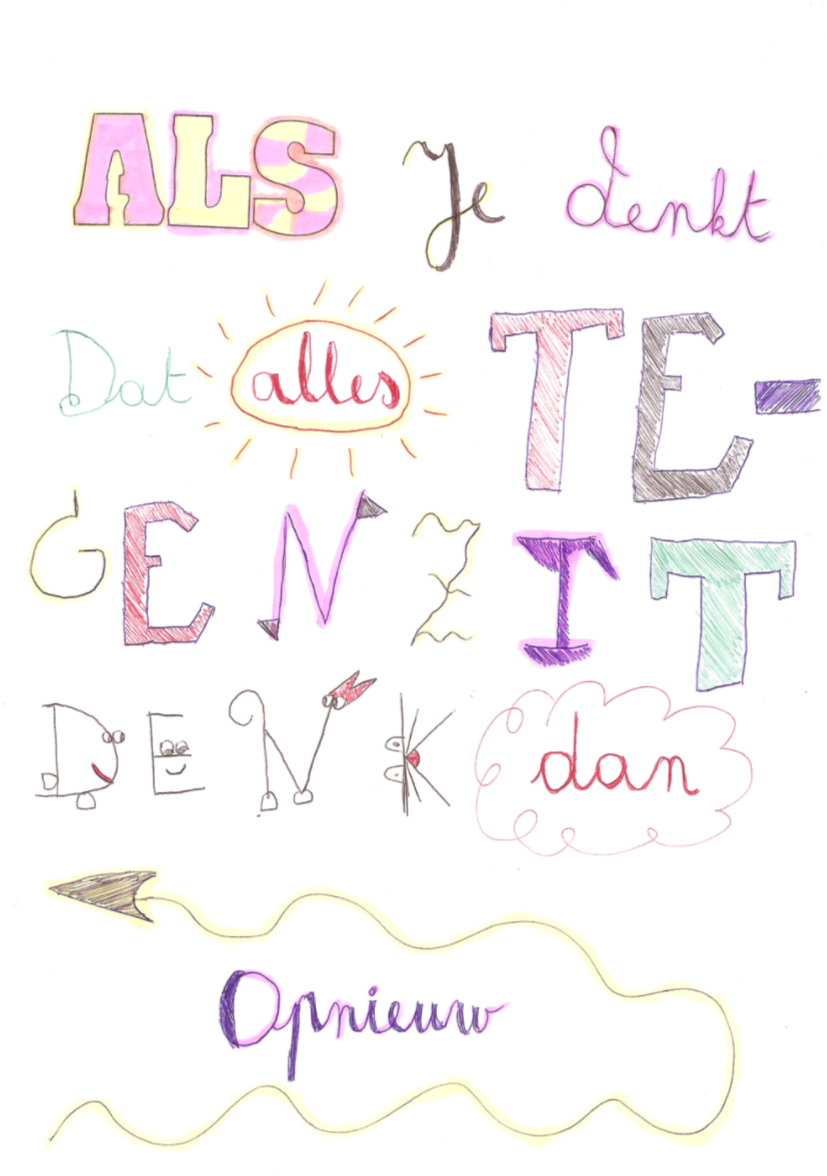 ALS Je denkt
Dat alles TE-
GENZIT
DENK dan
Opnieuw